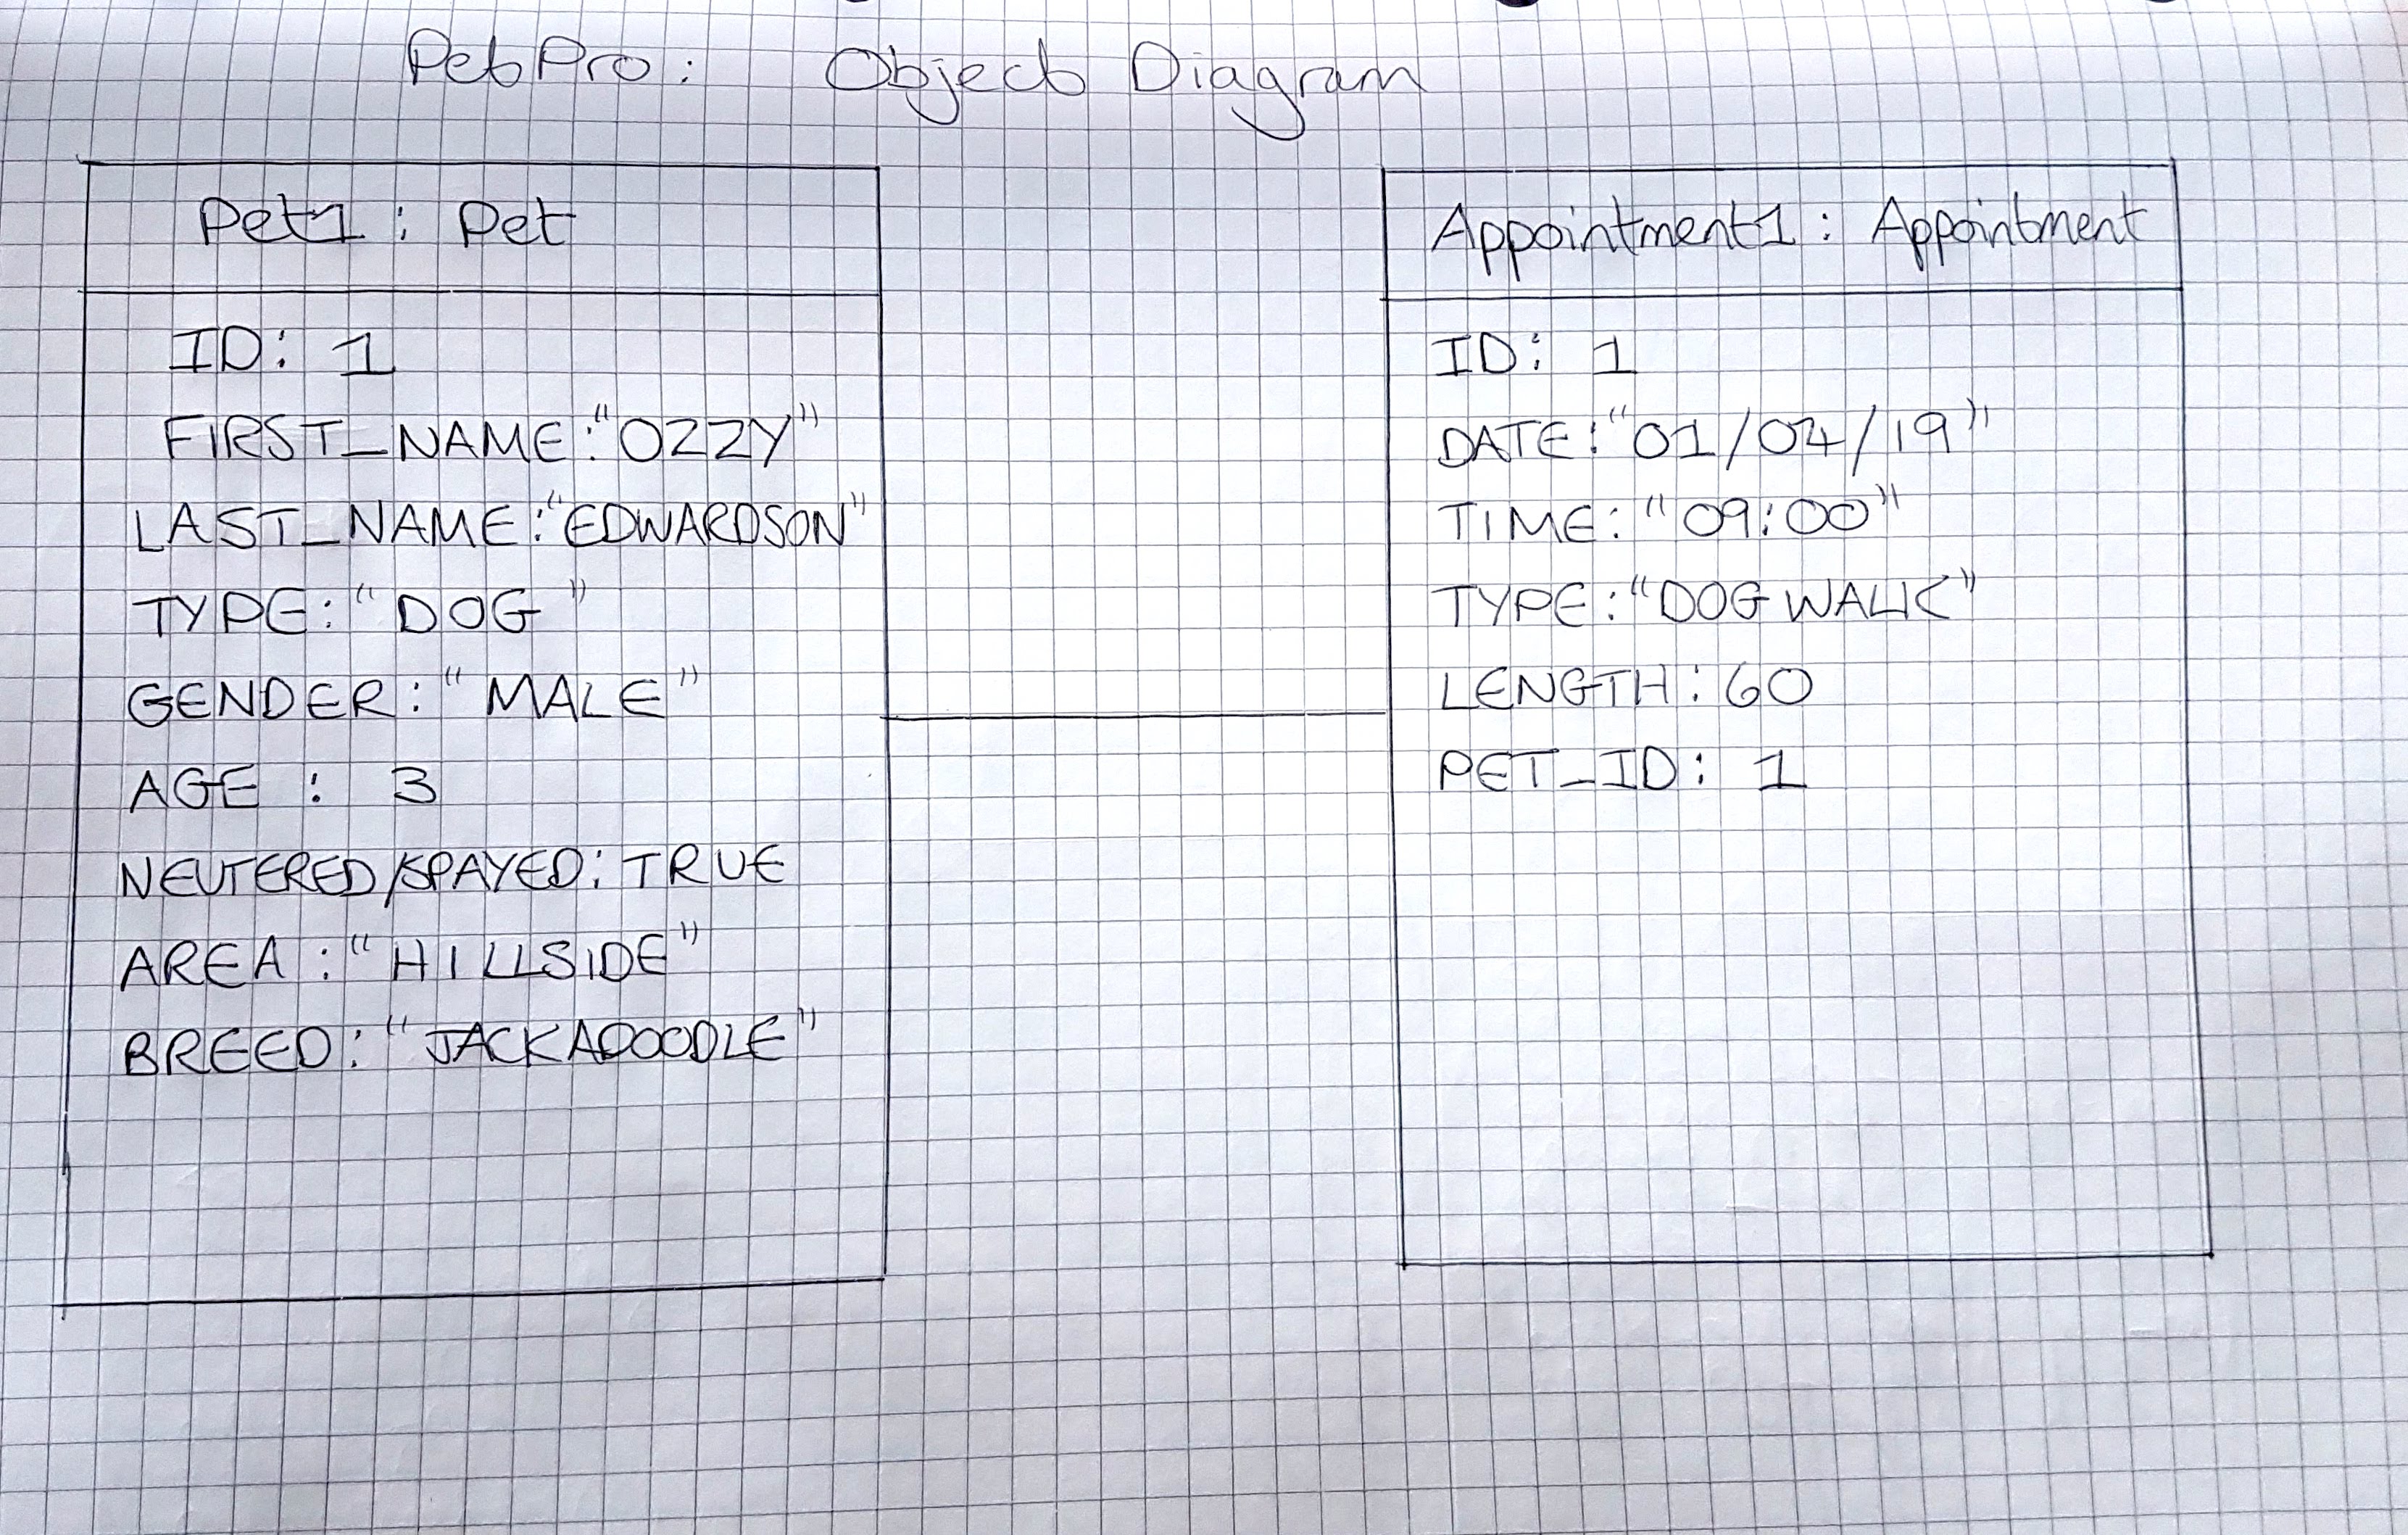 PetPro: Object Diagram
Pet1 : Pet
ID: 1
FIRST_NAME:"OZZY"
LAST_NAME:"EDWARDSON"
TYPE:"DOG"
GENDER:"MALE"
AGE : 3
NEUTERED/SPAYED: TRUE
AREA :"HILLSIDE"
BREED:"JACKADOODLE"
Appointment1 : Appointment
ID: 1
DATE:"01/04/19"
TIME:"09:00"
TYPE:"DOG WALK"
LENGTH:60
PET_ID: 1